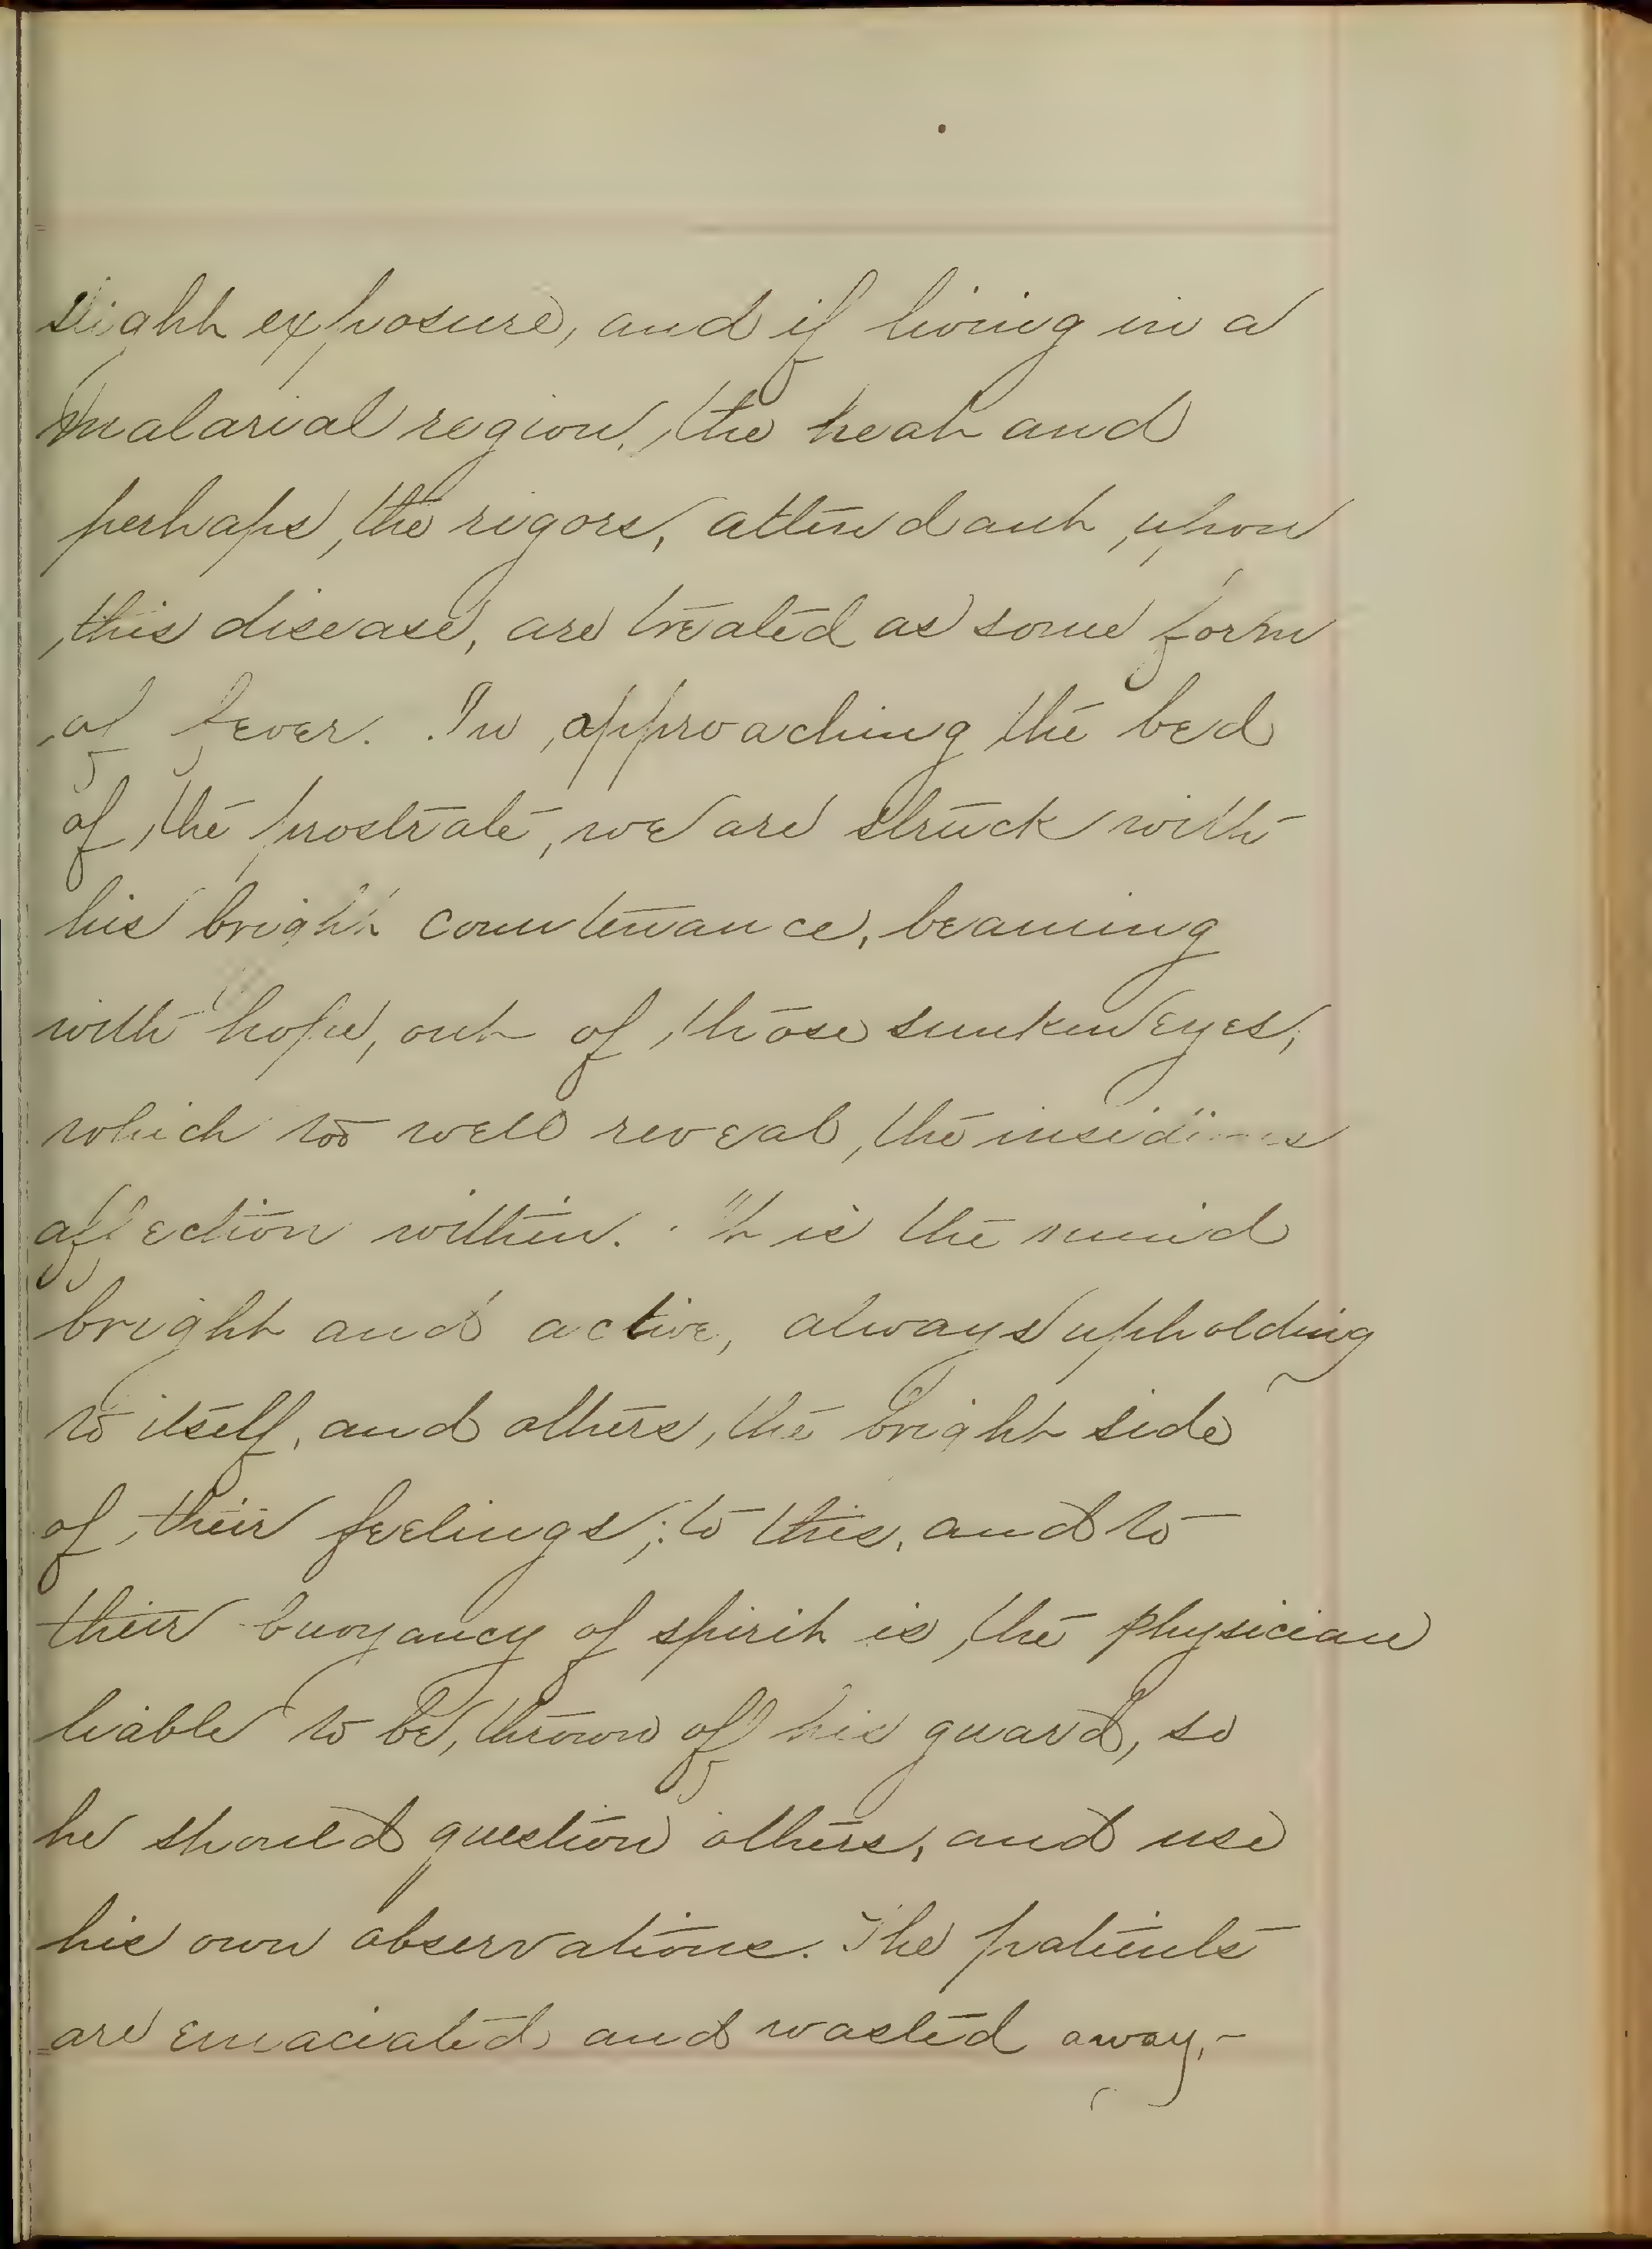 slight exposure, and if living in a
malarial region, the heat and
perhaps, the rigors, attendant upon
this disease, are treated as some form
of fever. In approaching the bed
of the prostrate, we are struck with
his bright countenance, beaming
with hope, out of those sunken eyes,
which too well reveal, the insidious
affection within. It is the mind
bright and active, always upholding
to itself, and others, the bright side
of their feelings; to this, and to
their buoyancy of spirit is the physician
liable to be, thrown off his guard, so
he should question others, and use
his own observations. The patients
are emaciated, and wasted away,-